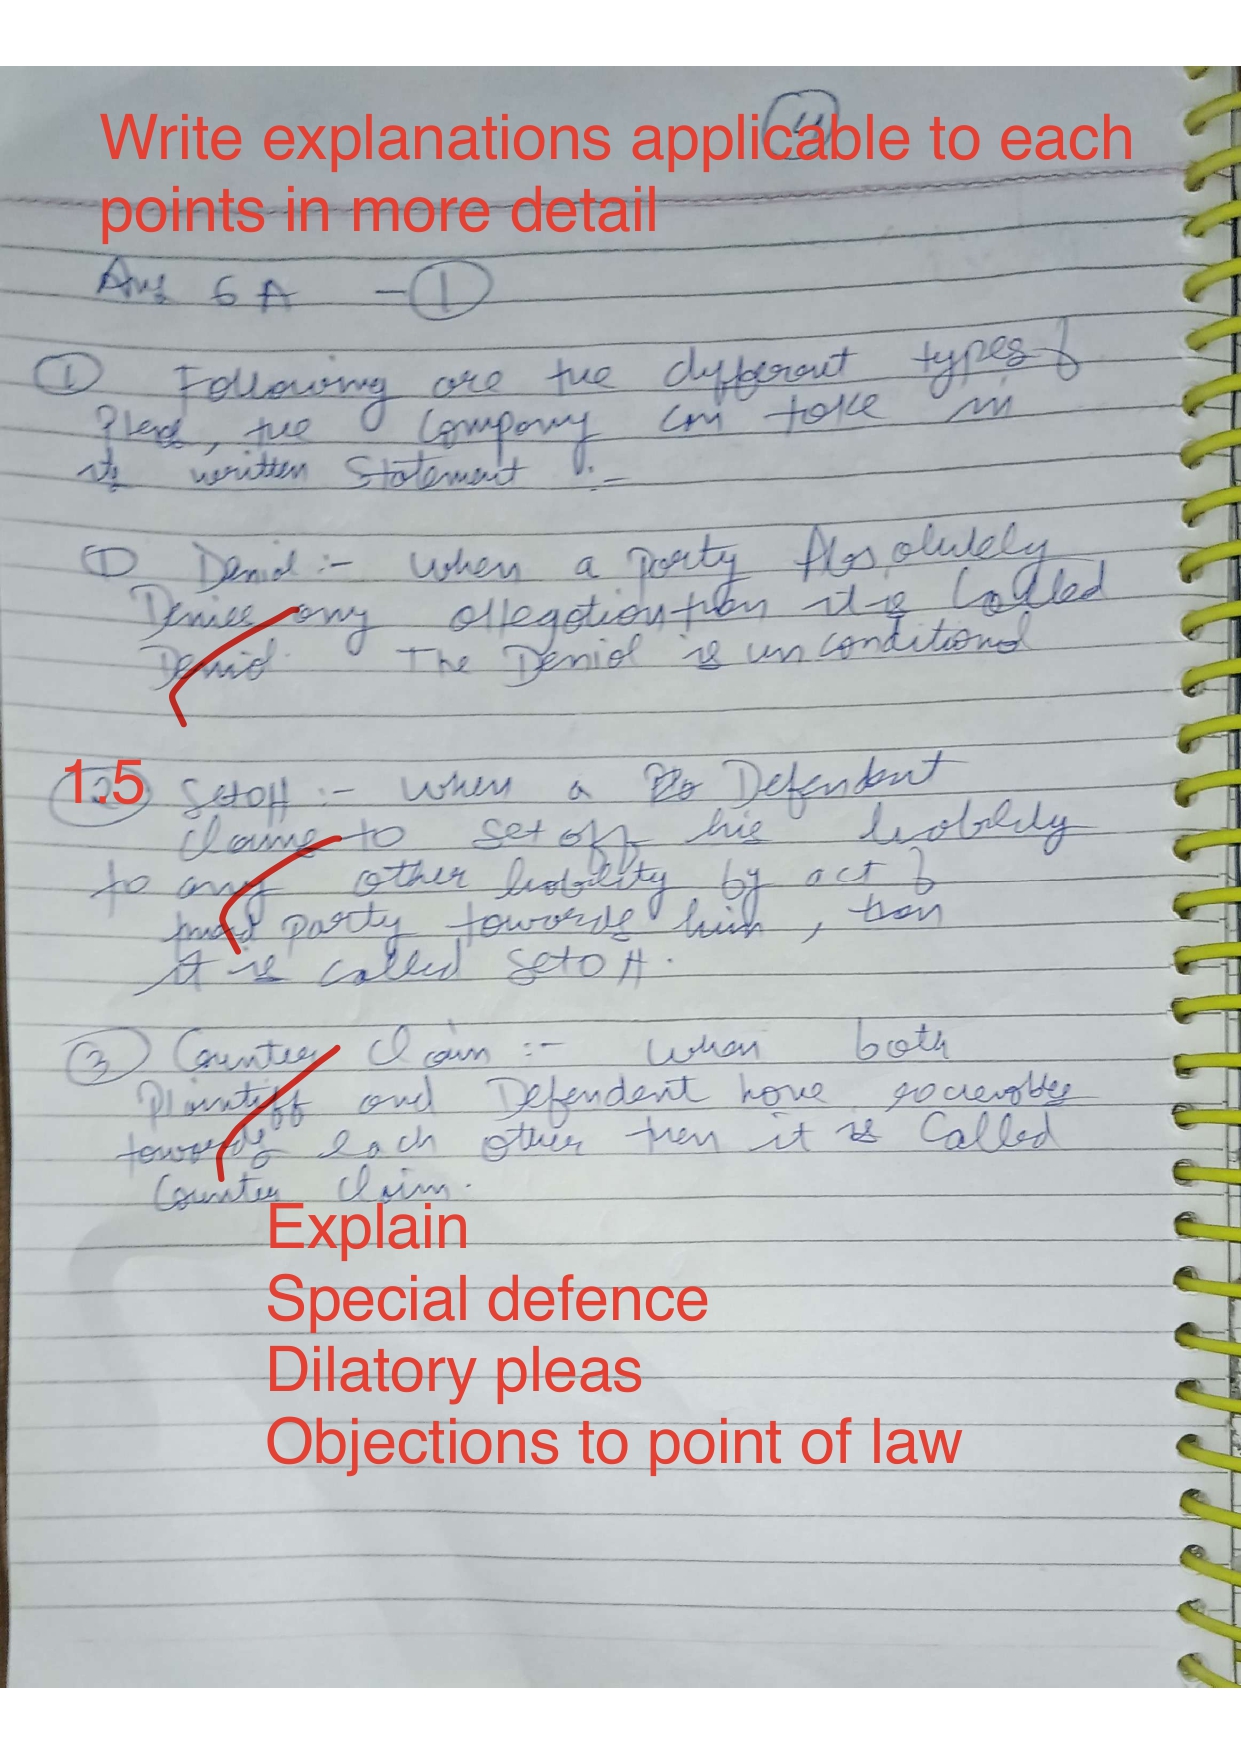 Write explanations applicable to each
points in more detail
Ans 6A - 1
1 Following are the different types of
Pleas, the Company can take in
its written Statement :-
1 Denial :- When a party Absolutely
Denies any allegation then it is Called
Denial. The Denial is unconditional
1.5
2 Setoff :- When a Defendant
claims to set off his liability
to any other liability by act of
party towards him, then
it is called setoff.
3 Counter Claim :- When both
Plaintiff and Defendent have
towards each other then it is Called
Counter Claim.
Explain
Special defence
Dilatory pleas
Objections to point of law